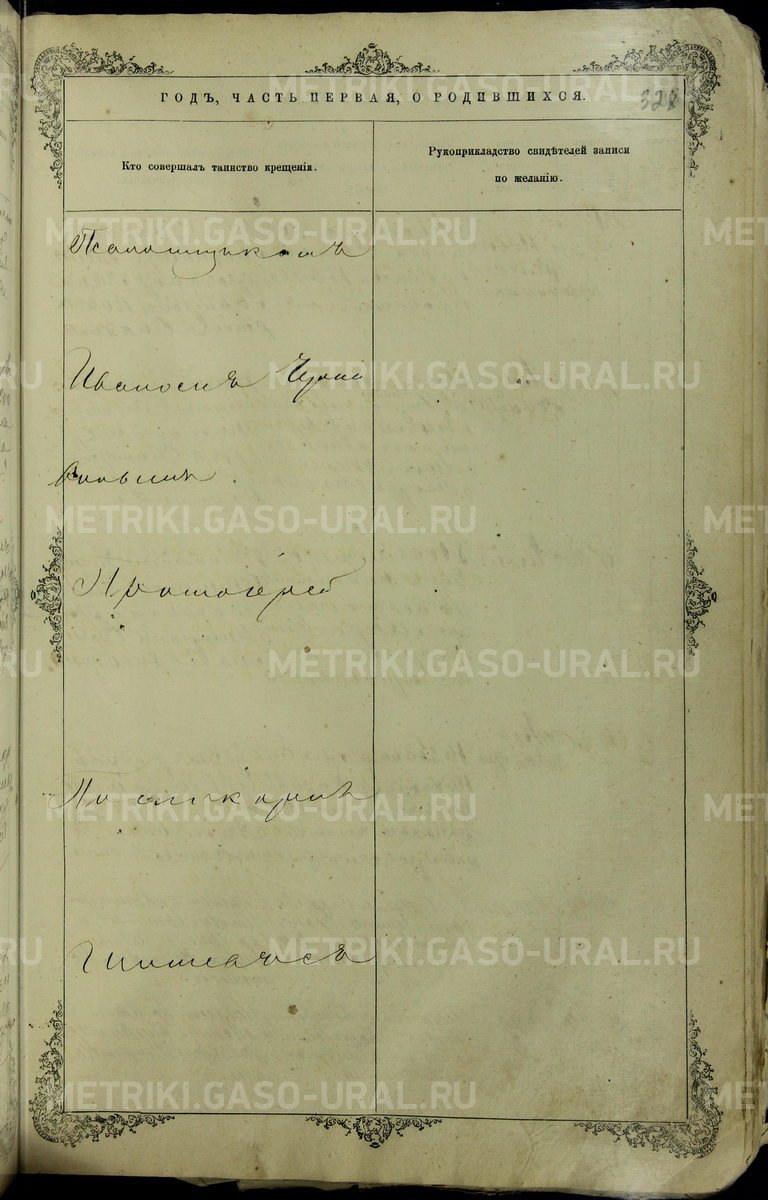 ГОДЪ, ЧАСТЬ ПЕРВАЯ, О РОДИВШИХСЯ.
328
Кто совершалъ таинство крещенія.
Рукоприкладство свидѣтелей записи
по желанію.
Псаломщикомъ
Протоіерей
Поликарпъ
METRIKI.GASO-URAL.RU